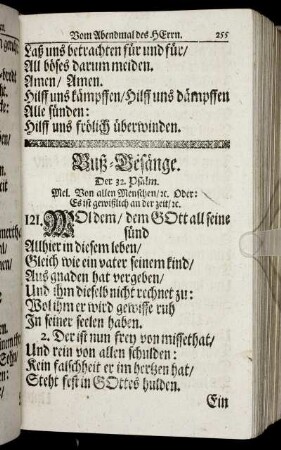 Vom Abendmal des HErrn. 255
Laß uns betrachten für und für/
All böses darum meiden.
Amen/ Amen.
Hilff uns kämpffen/ Hilff uns dämpffen
Alle sünden:
Hilff uns frölich überwinden.
Buß-Gesänge.
Der 32. Psalm.
Mel. Von allen Menschen/ ꝛc. Oder:
Es ist gewißlich an der zeit/ ꝛc.
121. WOldem/ dem GOtt all seine
sünd
Allhier in diesem leben/
Gleich wie ein vater seinem kind/
Aus gnaden hat vergeben/
Und ihm dieselb nicht rechnet zu:
Wol ihm er wird gewisse ruh
In seiner seelen haben.
2. Der ist nun frey von missethat/
Und rein von allen schulden:
Kein falschheit er im hertzen hat/
Steht fest in GOttes hulden.
Ein